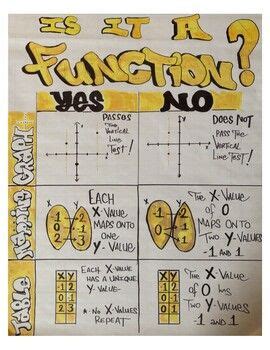 IS IT A
FUNCTION?
YES
NO
GRAPH
PASSES
THE
VERTICAL
LINE
TEST!
DOES NOT
PASS THE
VERTICAL
LINE TEST!
EACH
X-VALUE
MAPS ONTO
ONE
Y-VALUE
THE X-VALUE
OF 0
MAPS ONTO
TWO Y-VALUES
-1 AND 1
TABLE
X Y
EACH X-VALUE
HAS A UNIQUE
Y-VALUE
NO X-VALUES
REPEAT
X Y
THE X-VALUE
OF 0 HAS
TWO Y-VALUES
-1 AND 1